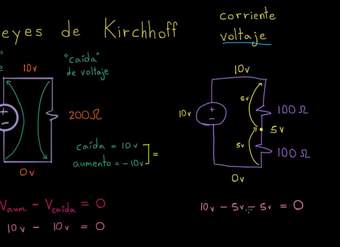 eyes de Kirchhoff
corriente
voltaje
"caída"
de voltaje
10v
200Ω
caída = 10v
aumento = -10v
=
0v
Vaum - Vcaída = 0
10v - 10v = 0
10v
10v
5v
100Ω
5v
5v
100Ω
0v
10v - 5v - 5v = 0